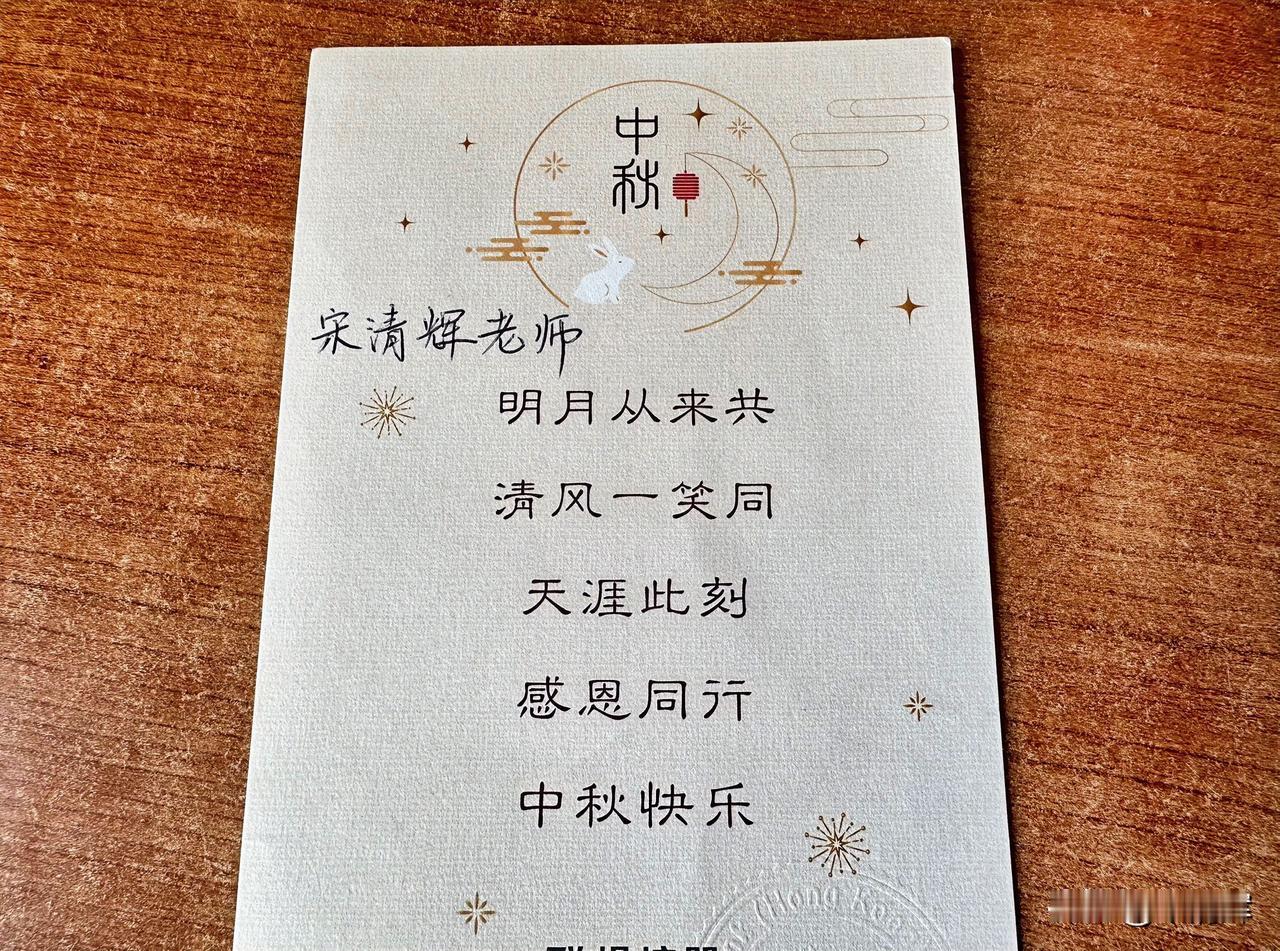 中
秋
宋清辉老师
明月从来共
清风一笑同
天涯此刻
感恩同行
中秋快乐
(Hong Ko